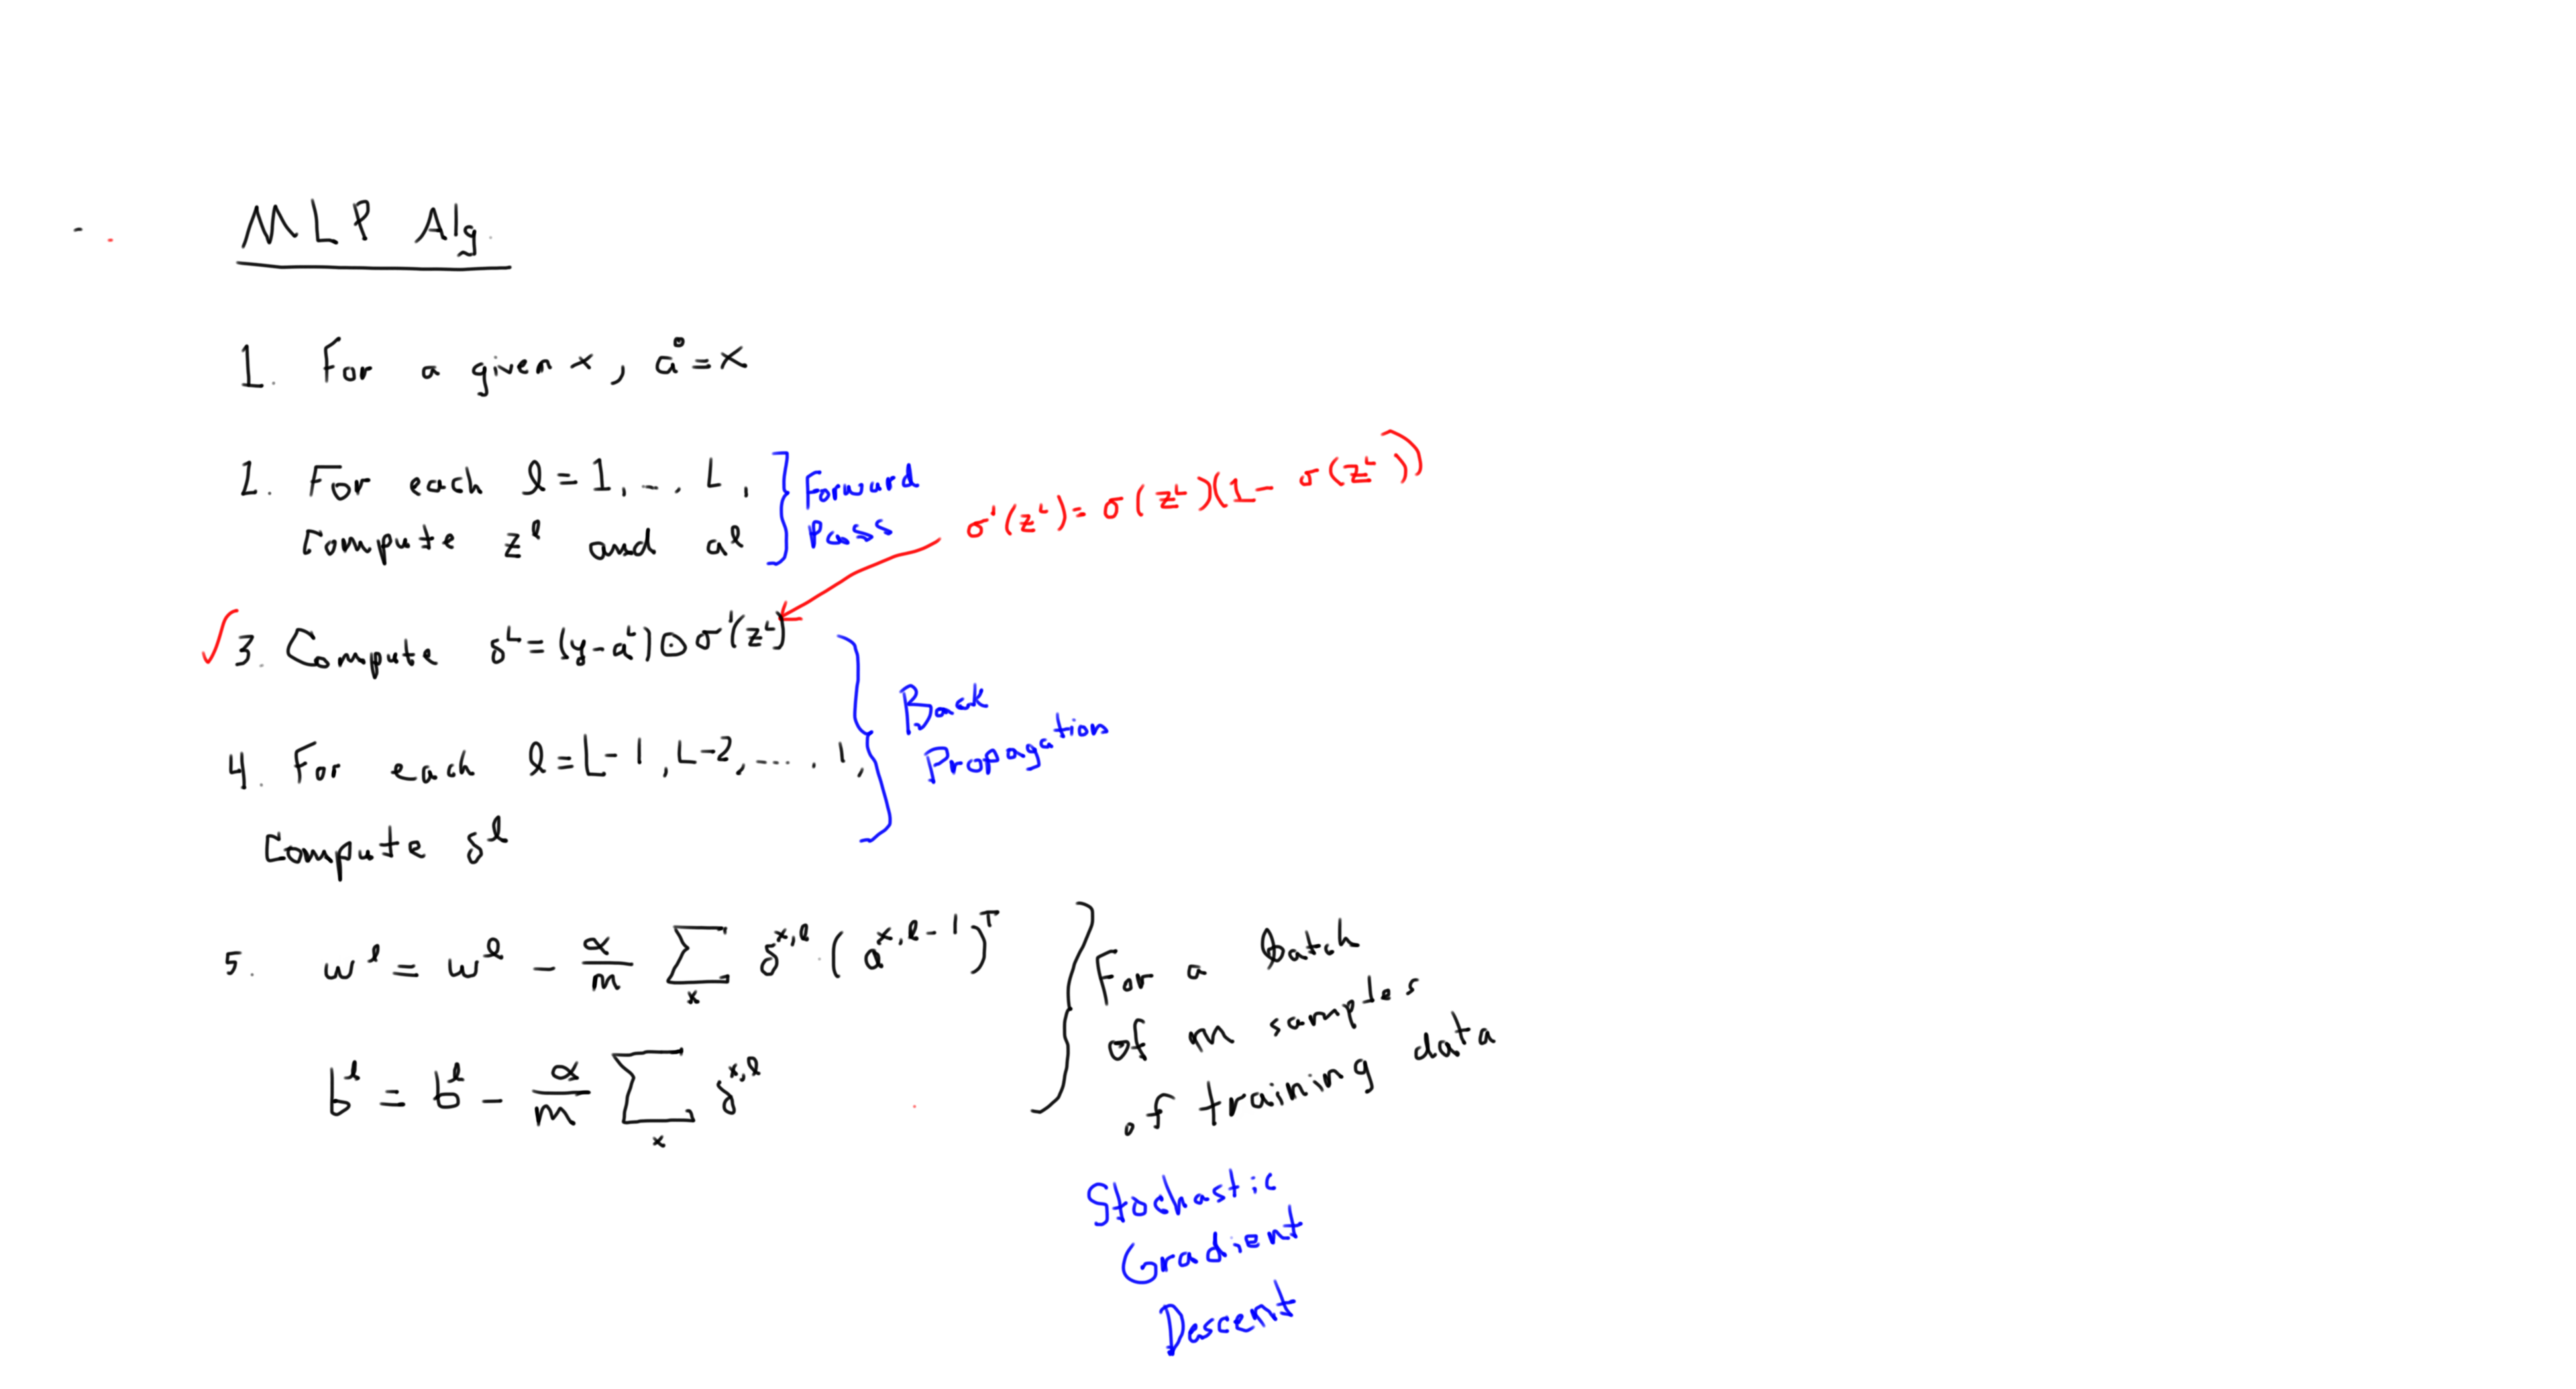 MLP Alg.
1. For a given x, a⁰ = x
2. For each l = 1, ..., L,
Compute zˡ and aˡ
Forward
Pass
σ'(zᴸ) = σ(zᴸ)(1 - σ(zᴸ))
✓3. Compute δᴸ = (y - aᴸ) ⊙ σ'(zᴸ)
4. For each l = L-1, L-2, ...., 1,
Compute δˡ
Back
Propagation
5. wˡ = wˡ - α/m ∑ₓ δ^{x,l} (a^{x,l-1})ᵀ
bˡ = bˡ - α/m ∑ₓ δ^{x,l}
For a batch
of m samples
of training data
Stochastic
Gradient
Descent